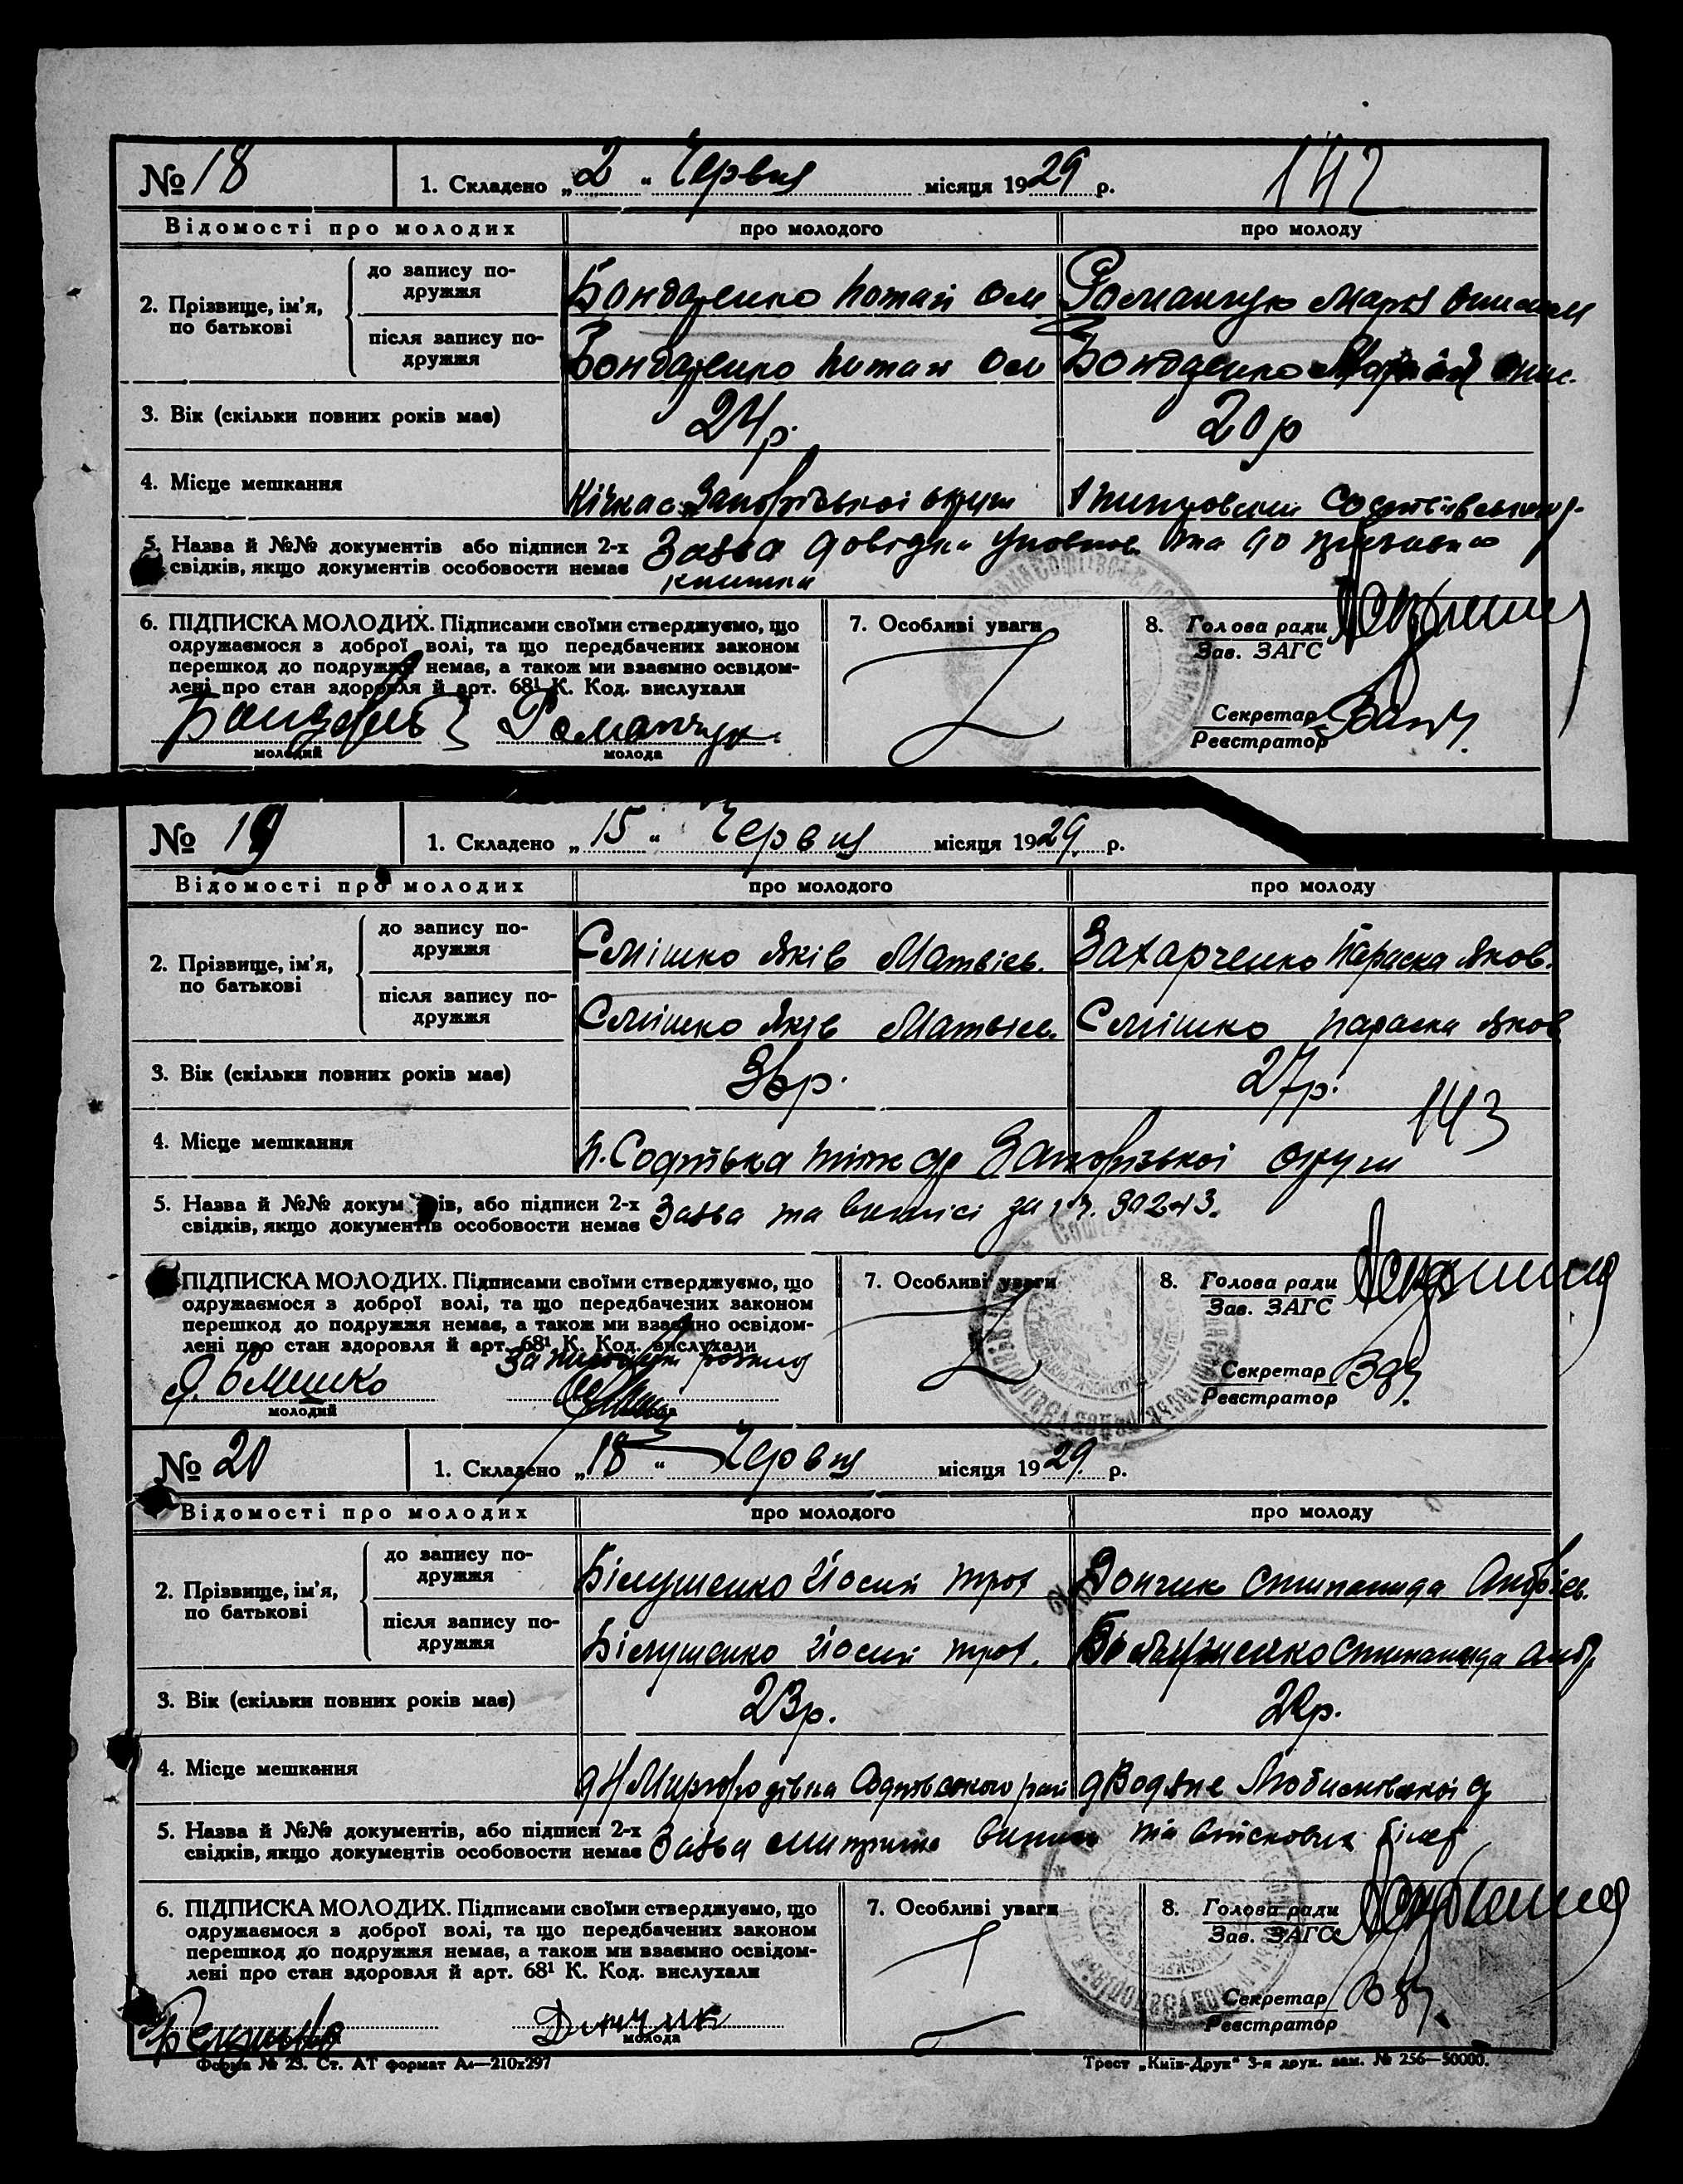 № 18 1. Складено „ 2 “ Червня місяця 1929 р. 142
Відомості про молодих про молодого про молоду
2. Прізвище, ім’я, по батькові
до запису подружжя Бондаренко Ом Романчук Марія
після запису подружжя Бондаренко Ом Бондаренко Марія
3. Вік (скільки повних років має) 24 р. 20 р
4. Місце мешкання Кічкас Запорізької округи
5. Назва й №№ документів або підписи 2-х Заява довідки та до
свідків, якщо документів особовости немає книжки
6. ПІДПИСКА МОЛОДИХ. Підписами своїми стверджуємо, що 7. Особливі уваги 8. Голова ради
одружаємося з доброї волі, та що передбачених законом Зав. ЗАГС
перешкод до подружжя немає, а також ми взаємно освідом-
лені про стан здоровля й арт. 68¹ К. Код. вислухали
Романчук Секретар
молодий молода Реєстратор
№ 19 1. Складено „ 15 “ Червня місяця 1929 р.
Відомості про молодих про молодого про молоду
2. Прізвище, ім’я, по батькові
до запису подружжя Смішко Яків Матвієв. Захарченко Параска Яков.
після запису подружжя Смішко Яків Матвієв. Смішко Параска Яков
3. Вік (скільки повних років має) 36 р. 27 р. 143
4. Місце мешкання Запорізької округи
5. Назва й №№ документів, або підписи 2-х Заява та виписі за
свідків, якщо документів особовости немає
ПІДПИСКА МОЛОДИХ. Підписами своїми стверджуємо, що 7. Особливі уваги 8. Голова ради
одружаємося з доброї волі, та що передбачених законом Зав. ЗАГС
перешкод до подружжя немає, а також ми взаємно освідом-
лені про стан здоровля й арт. 68¹ К. Код. вислухали
Я. Смішко Секретар
молодий Реєстратор
№ 20 1. Складено „ 18 “ Червня місяця 1929 р.
Відомості про молодих про молодого про молоду
2. Прізвище, ім’я, по батькові
до запису подружжя Білушенко Йосип Трох Дончик Степанида Андрієв.
після запису подружжя Білушенко Йосип Трох. Білушенко Степанида Андр
3. Вік (скільки повних років має) 23 р. 20 р.
4. Місце мешкання Миргородівка Софіївського рай Водяне
5. Назва й №№ документів, або підписи 2-х Заява виписи та військовий білет
свідків, якщо документів особовости немає
6. ПІДПИСКА МОЛОДИХ. Підписами своїми стверджуємо, що 7. Особливі уваги 8. Голова ради
одружаємося з доброї волі, та що передбачених законом Зав. ЗАГС
перешкод до подружжя немає, а також ми взаємно освідом-
лені про стан здоровля й арт. 68¹ К. Код. вислухали
Дончик Секретар
молода Реєстратор
Форма № 23. Ст. АТ формат А₄—210x297 Трест „Київ-Друк“ 3-я друк. зам. № 256—50000.